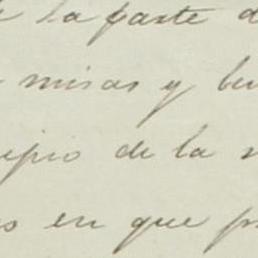 de la parte d
misas y be
cipio de la
os en que p